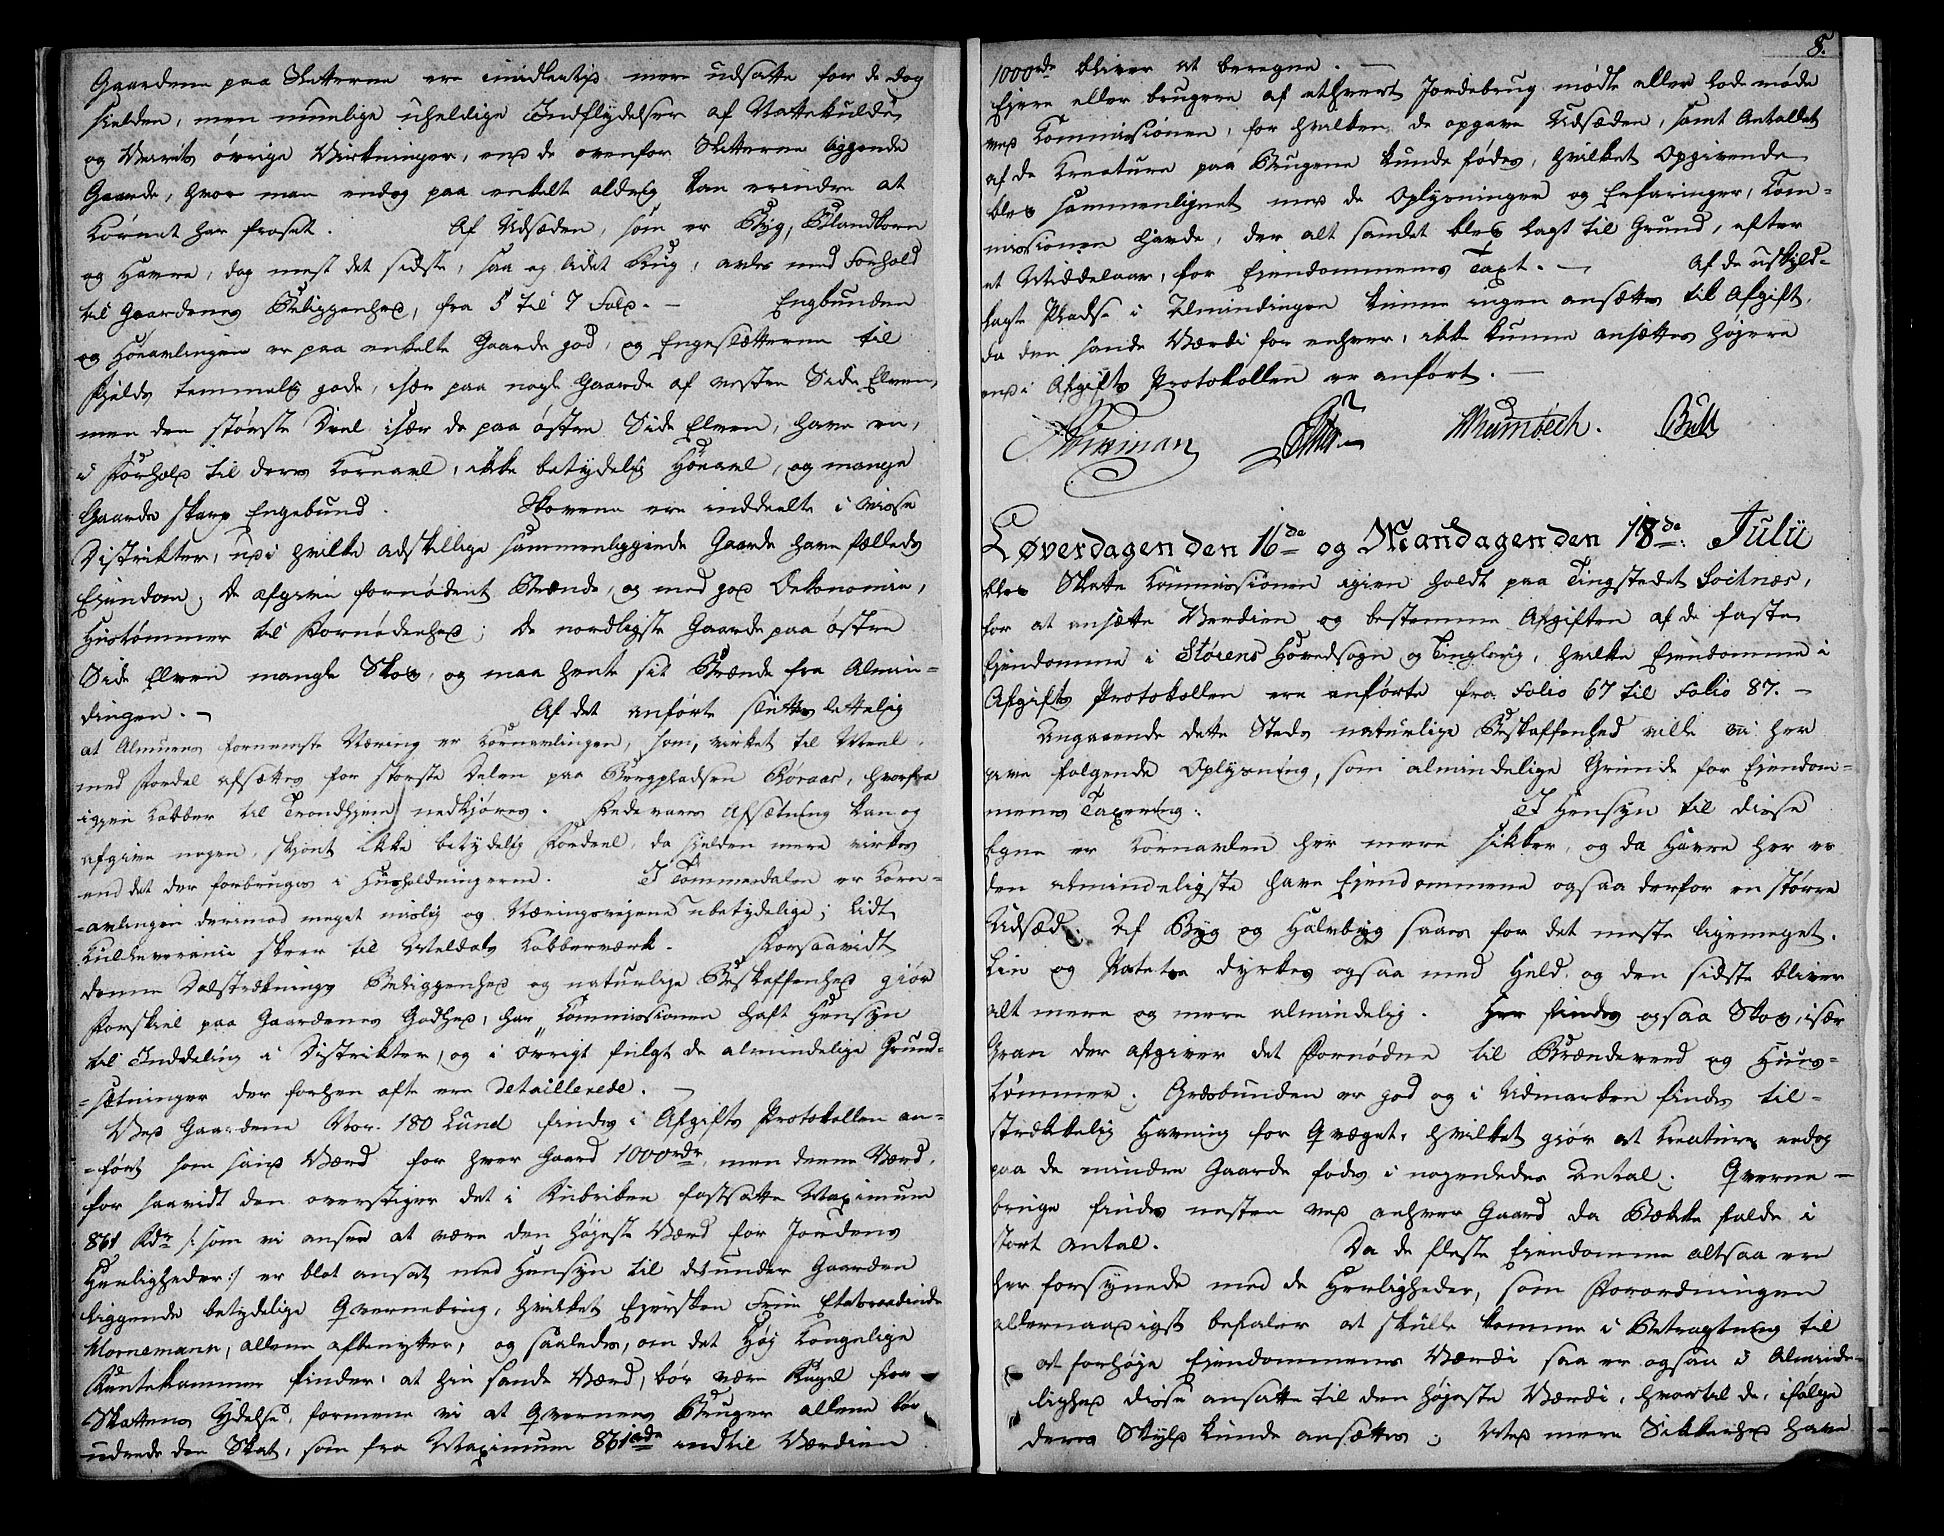 Gaardene paa Sletterne ere imidlertid mere udsatte for de dog
sielden, men muelige uheldige Indflydelser af Nattekulde,
og Veirets øvrige Virkninger, end de ovenfor Sletterne liggende
Gaarde, hvor man endog paa enkelt aldrig kan erindre at
Kornet har froset. Af Udsæden, som er Byg, Blandkorn
og Havre, dog mest det sidste, saa og lidet Rug, avles med Forhold
til Gaardenes Beliggenhed, fra 5 til 7 Fold. — Engbunden
og Høeavlingen er paa enkelte Gaarde god, og Engesletterne til
Fields temmelig gode, især paa nogle Gaarde af vestre Side Elven,
men den største Deel især de paa østre Side Elven, have en,
i Forhold til deres Kornavl, ikke betydelig Høeavl, og mange
Gaarde skarp Engebund. Skovene ere inddeelte i visse
Distrikter, ud i hvilke adskillige sammenliggende Gaarde have fælleds
Eiendom; de afgive fornødent Brænde, og med god Oekonomie,
Huustømmer til Fornødenhed; de nordligste Gaarde paa østre
Side Elven mangle Skov, og maa hente sit Brænde fra Almin=
dingen. — Af det anførte sluttes lettelig
at Almuens fornemste Næring er Kornavlingen, som, virket til Meel,
med Fordel afsættes for største Delen paa Bergstaden Røraas, hvorfra
igjen Kobber til Trondhjem nedkjøres. Fædevares Afsætning kan og
afgive nogen, skjønt ikke betydelig Fordeel, da sielden mere virkes
end det der forbruges i Huusholdningerne. I Sommerdalen er Korn=
=avlingen derimod meget mislig og Næringsveiene ubetydelige; lidt
Kulleveranci skeer til Meldals Kobberværk. Forsaavidt
denne Dalstræknings Beliggenhed og naturlige Beskaffenhed giør
Forskiel paa Gaardenes Godhed, har Commissionen haft Hensyn
til Inddeling i Distrikter, og i øvrigt fulgt de almindelige Grund=
=sætninger der forhen ofte ere detaillerede. —
Ved Gaardene Nor. 180 Lund findes i Afgifts Protokollen an=
=ført som sand Værd for hver Gaard 1000rdr, men denne Værd,
for saavidt den overstiger det i Rubriken fastsatte Maximum
861 Rdr /: som vi anser at være den højeste Værd for Jordens
Herligheder:/ er blot ansat med Hensyn til det under Gaarden
liggende betydelige Qvernebrug, hvilket Ejersken Frue Etatsraadinde
Hornemann, allene afbenytter, og saaledes, om det Høj Kongelige
Rentekammer finder, at hin sande Værd, bør være Regel for
Skattens Ydelse, formene vi at Qvernens Bruger allene bør
udrede den Skat, som fra Maximum 861de indtil Værdien
8.
1000rdr bliver at beregne. —
Ejere eller brugere af ethvert Jordebrug mødte eller lode møde
ved Kommissionen, for hvilken de opgave Udsæden, samt Antallet
af de Kreature paa Brugene kunde fødes, hvilket Opgivende
blev sammenlignet med de Oplysninger og Erfaringer, Kom=
missionen havde, der alt samlet blev lagt til Grund, efter
et Middelaar, for Eiendommens Taxt. — Af de uskyld=
lagte Pladse i Almindingen kunne ingen ansættes til Afgift,
da den sande Værdi for enhver, ikke kunne ansættes højere
end i Afgifts Protokollen er anført. —
Krumbech. Bull
Løverdagen den 16de og Mandagen den 18de Julii
blev Skatte Commissionen igien holdt paa Tingstedet Soknæs,
for at ansætte Værdien og bestemme Afgiften af de faste
Eiendomme i Størens Hovedsogn og Tinglaug, hvilke Eiendomme i
Afgifts Protokollen ere anførte fra Folio 67 til Folio 87. —
Angaaende dette Steds naturlige Beskaffenhed ville vi her
give følgende Oplysning, som almindelige Grunde for Eiendom=
mens Taxering. I Hensyn til disse
Egne er Kornavlen her mere sikker, og da Havre her er
den almindeligste have Eiendommene ogsaa derfor en større
Udsæd. Af Byg og Halvbyg saaes for det meste ligemeget.
Lin og Potetes dyrkes ogsaa med Held og den sidste bliver
alt mere og mere almindelig. Her findes ogsaa Skov, især
Gran der afgiver det Fornødne til Brændeved og Huus=
tømmer. Græsbunden er god og i Udmarken findes til=
strækkelig Havning for Qvæget, hvilket giør at Kreature endog
paa de mindre Gaarde fødes i nogenledes Antal. Qverne=
bruge findes nesten ved enhver Gaard da Bække falde i
stort Antal. Da de fleste Eiendomme altsaa ere
her forsynede med de Herligheder, som Forordningen
allernaadigst befaler at skulle komme i Betragtning til
at forhøje Eiendommens Værdi saa er ogsaa i Alminde=
lighed disse ansatte til den højeste Værdi, hvortil de, ifølge
deres Skyld kunde ansættes; Med mere Sikkerhed have